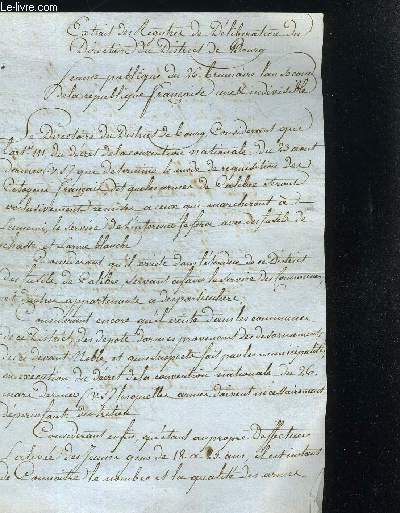 www.le-livre.com
Extrait des Registres de Déliberation du
Directoire du District de Bourg
Seance publique du 25 brumaire l'an second
de la republique française une & indivisible
Le Directoire du District de bourg Considerant que
l'art. III du decret de la convention nationale du 23 aout
dernier v. s. que determine le mode de requisition des
Citoyens français Dit que les armes de Calibre seront
exclusivement remises a ceux qui marcheront à
l'ennemi, le service de l'interieur se fera avec des fusils de
chasse et l'arme blanche
Considerant qu'il existe dans l'etendue de ce District
des fusils de Calibre servant au service des communes
et d'autres appartenants a des particuliers,
Considerant encore qu'il existe dans les communes
de ce District, des depots d'armes provenant des desarmements
des ci devant Nobles et aux suspects fait par les municipalités
en execution du decret de la convention nationale du 26
mars dernier v. s. lesquelles armes doivent necessairement
Considerant enfin, qu'etant au propre d'effectuer
La levée des jeunes gens de 18 a 25 ans, il est instant
de Connaitre le nombre et la qualité des armes